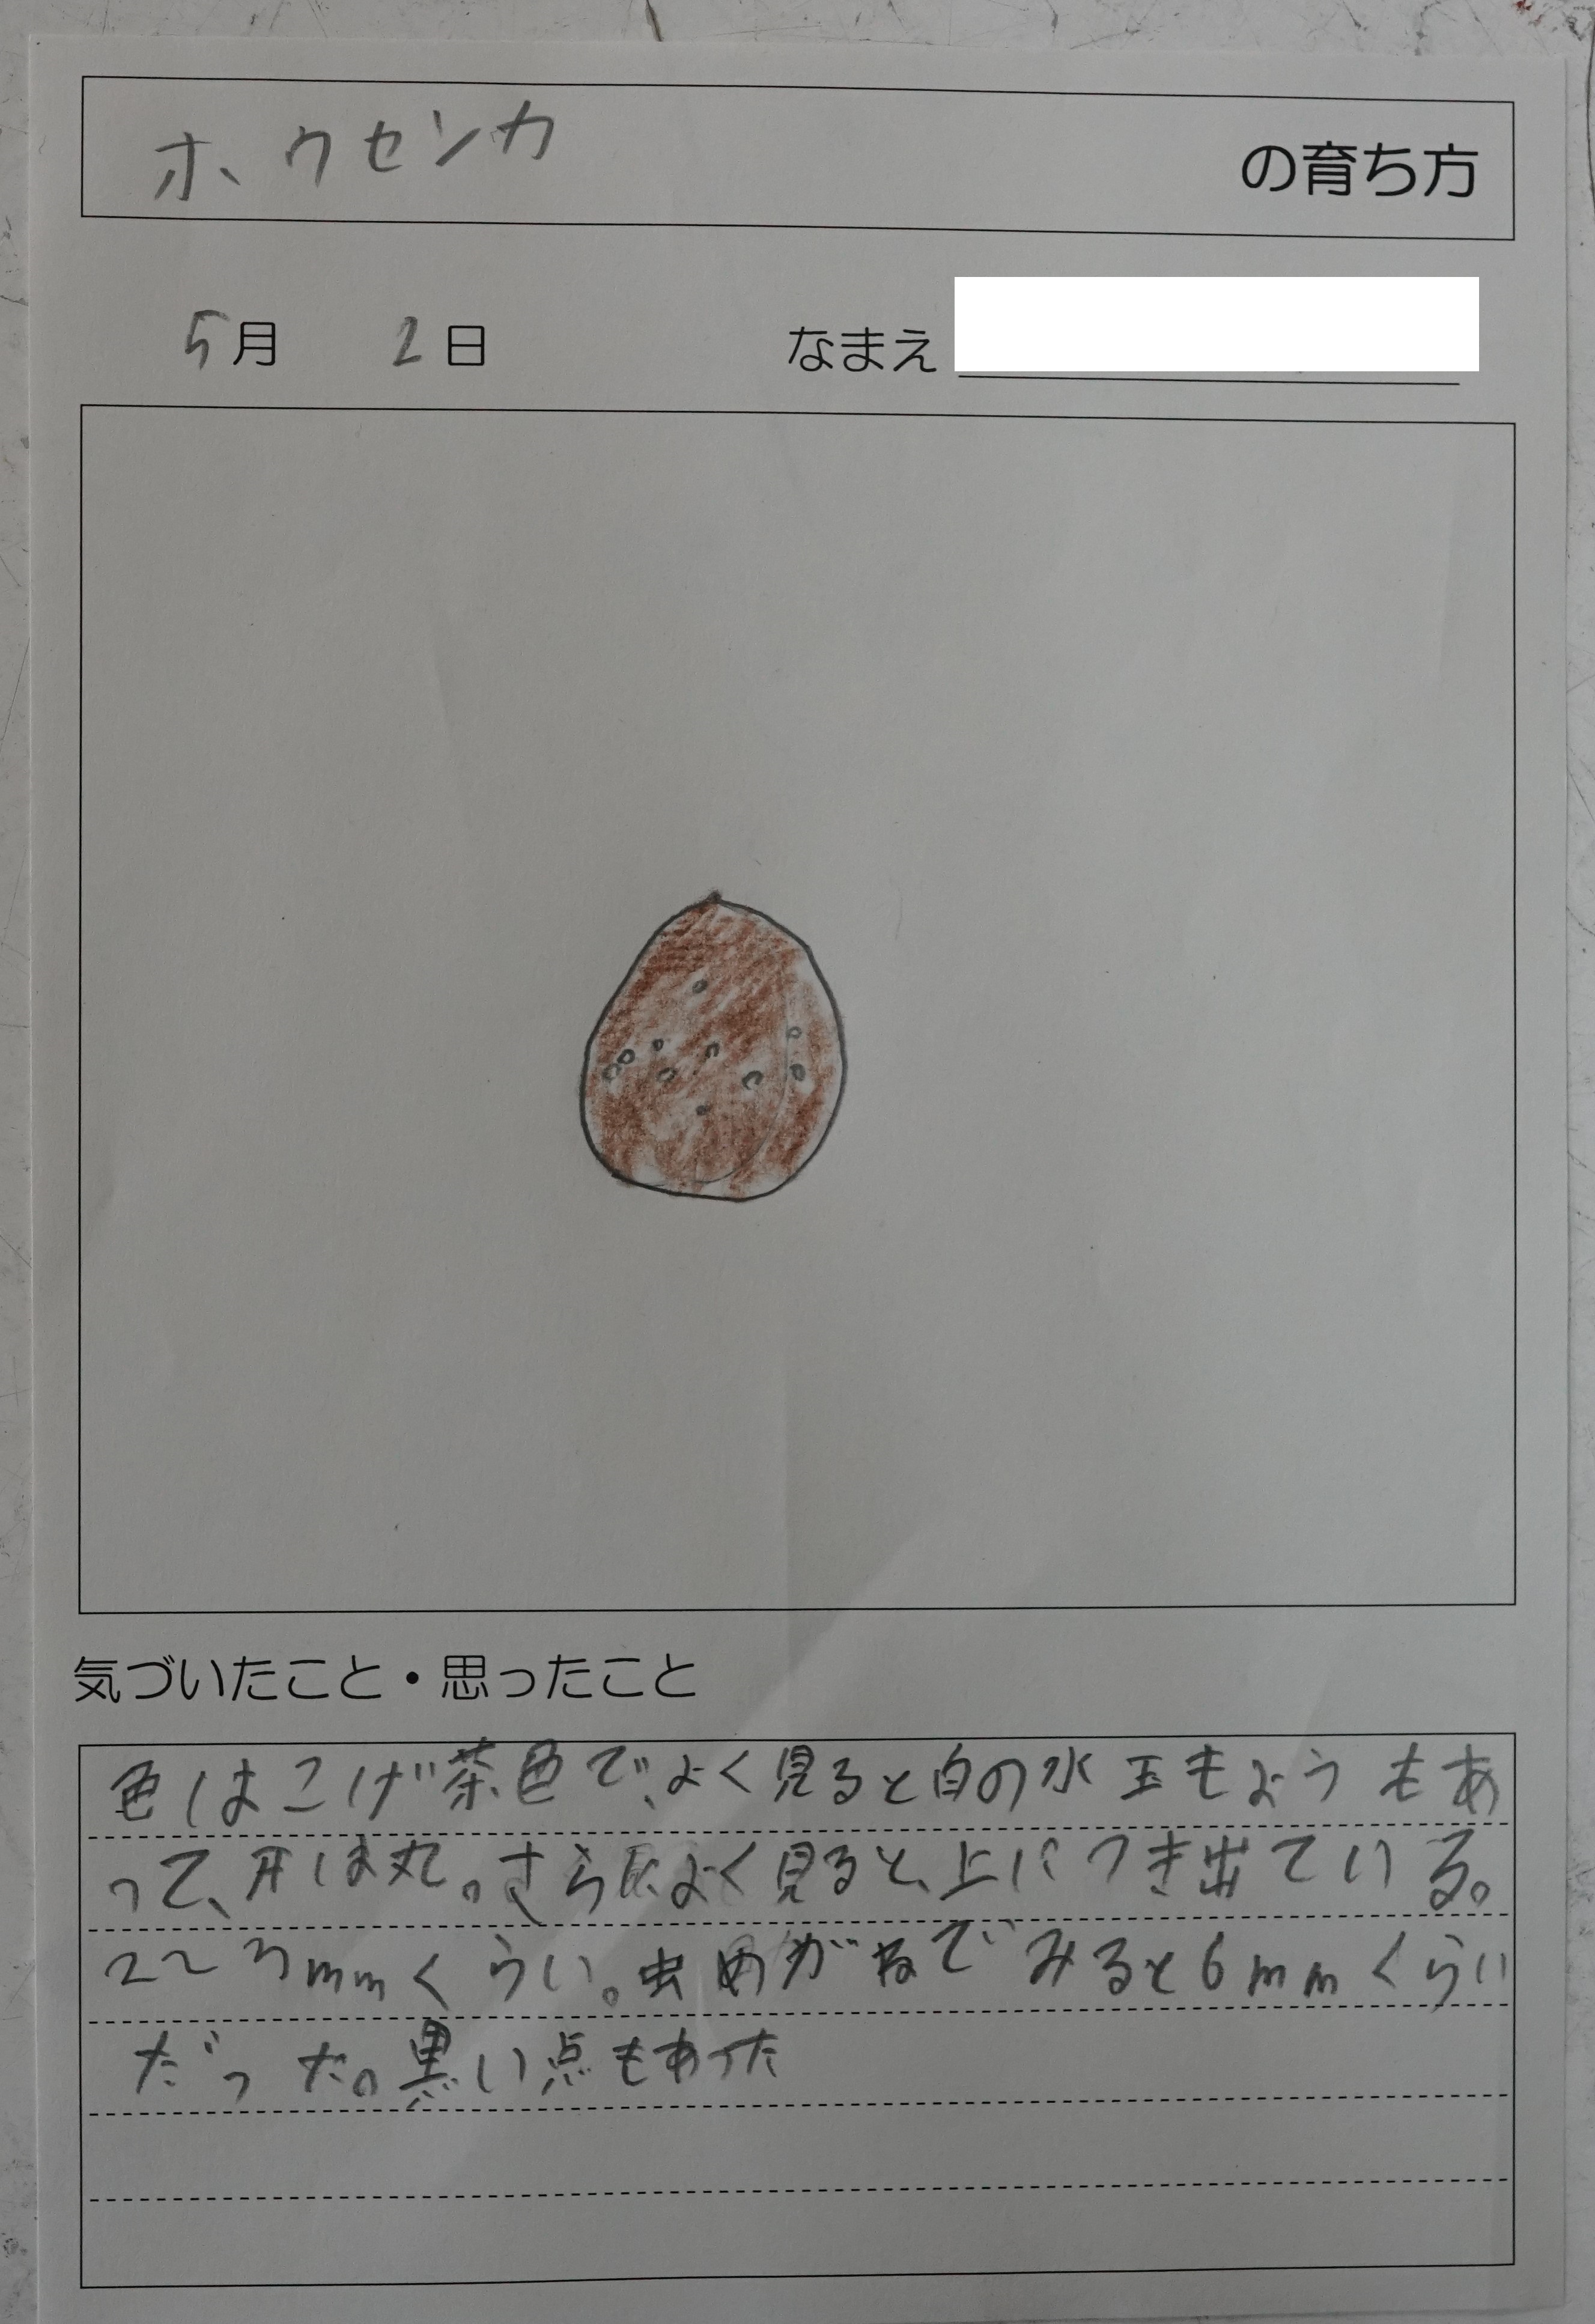 ホウセンカ の育ち方
5月 2日 なまえ
気づいたこと・思ったこと
色はこげ茶色で、よく見ると白の水玉もようもあ
って、形は丸。さらによく見ると、上につき出ている。
2〜3mmくらい。虫めがねでみると6mmくらい
だった。黒い点もあった